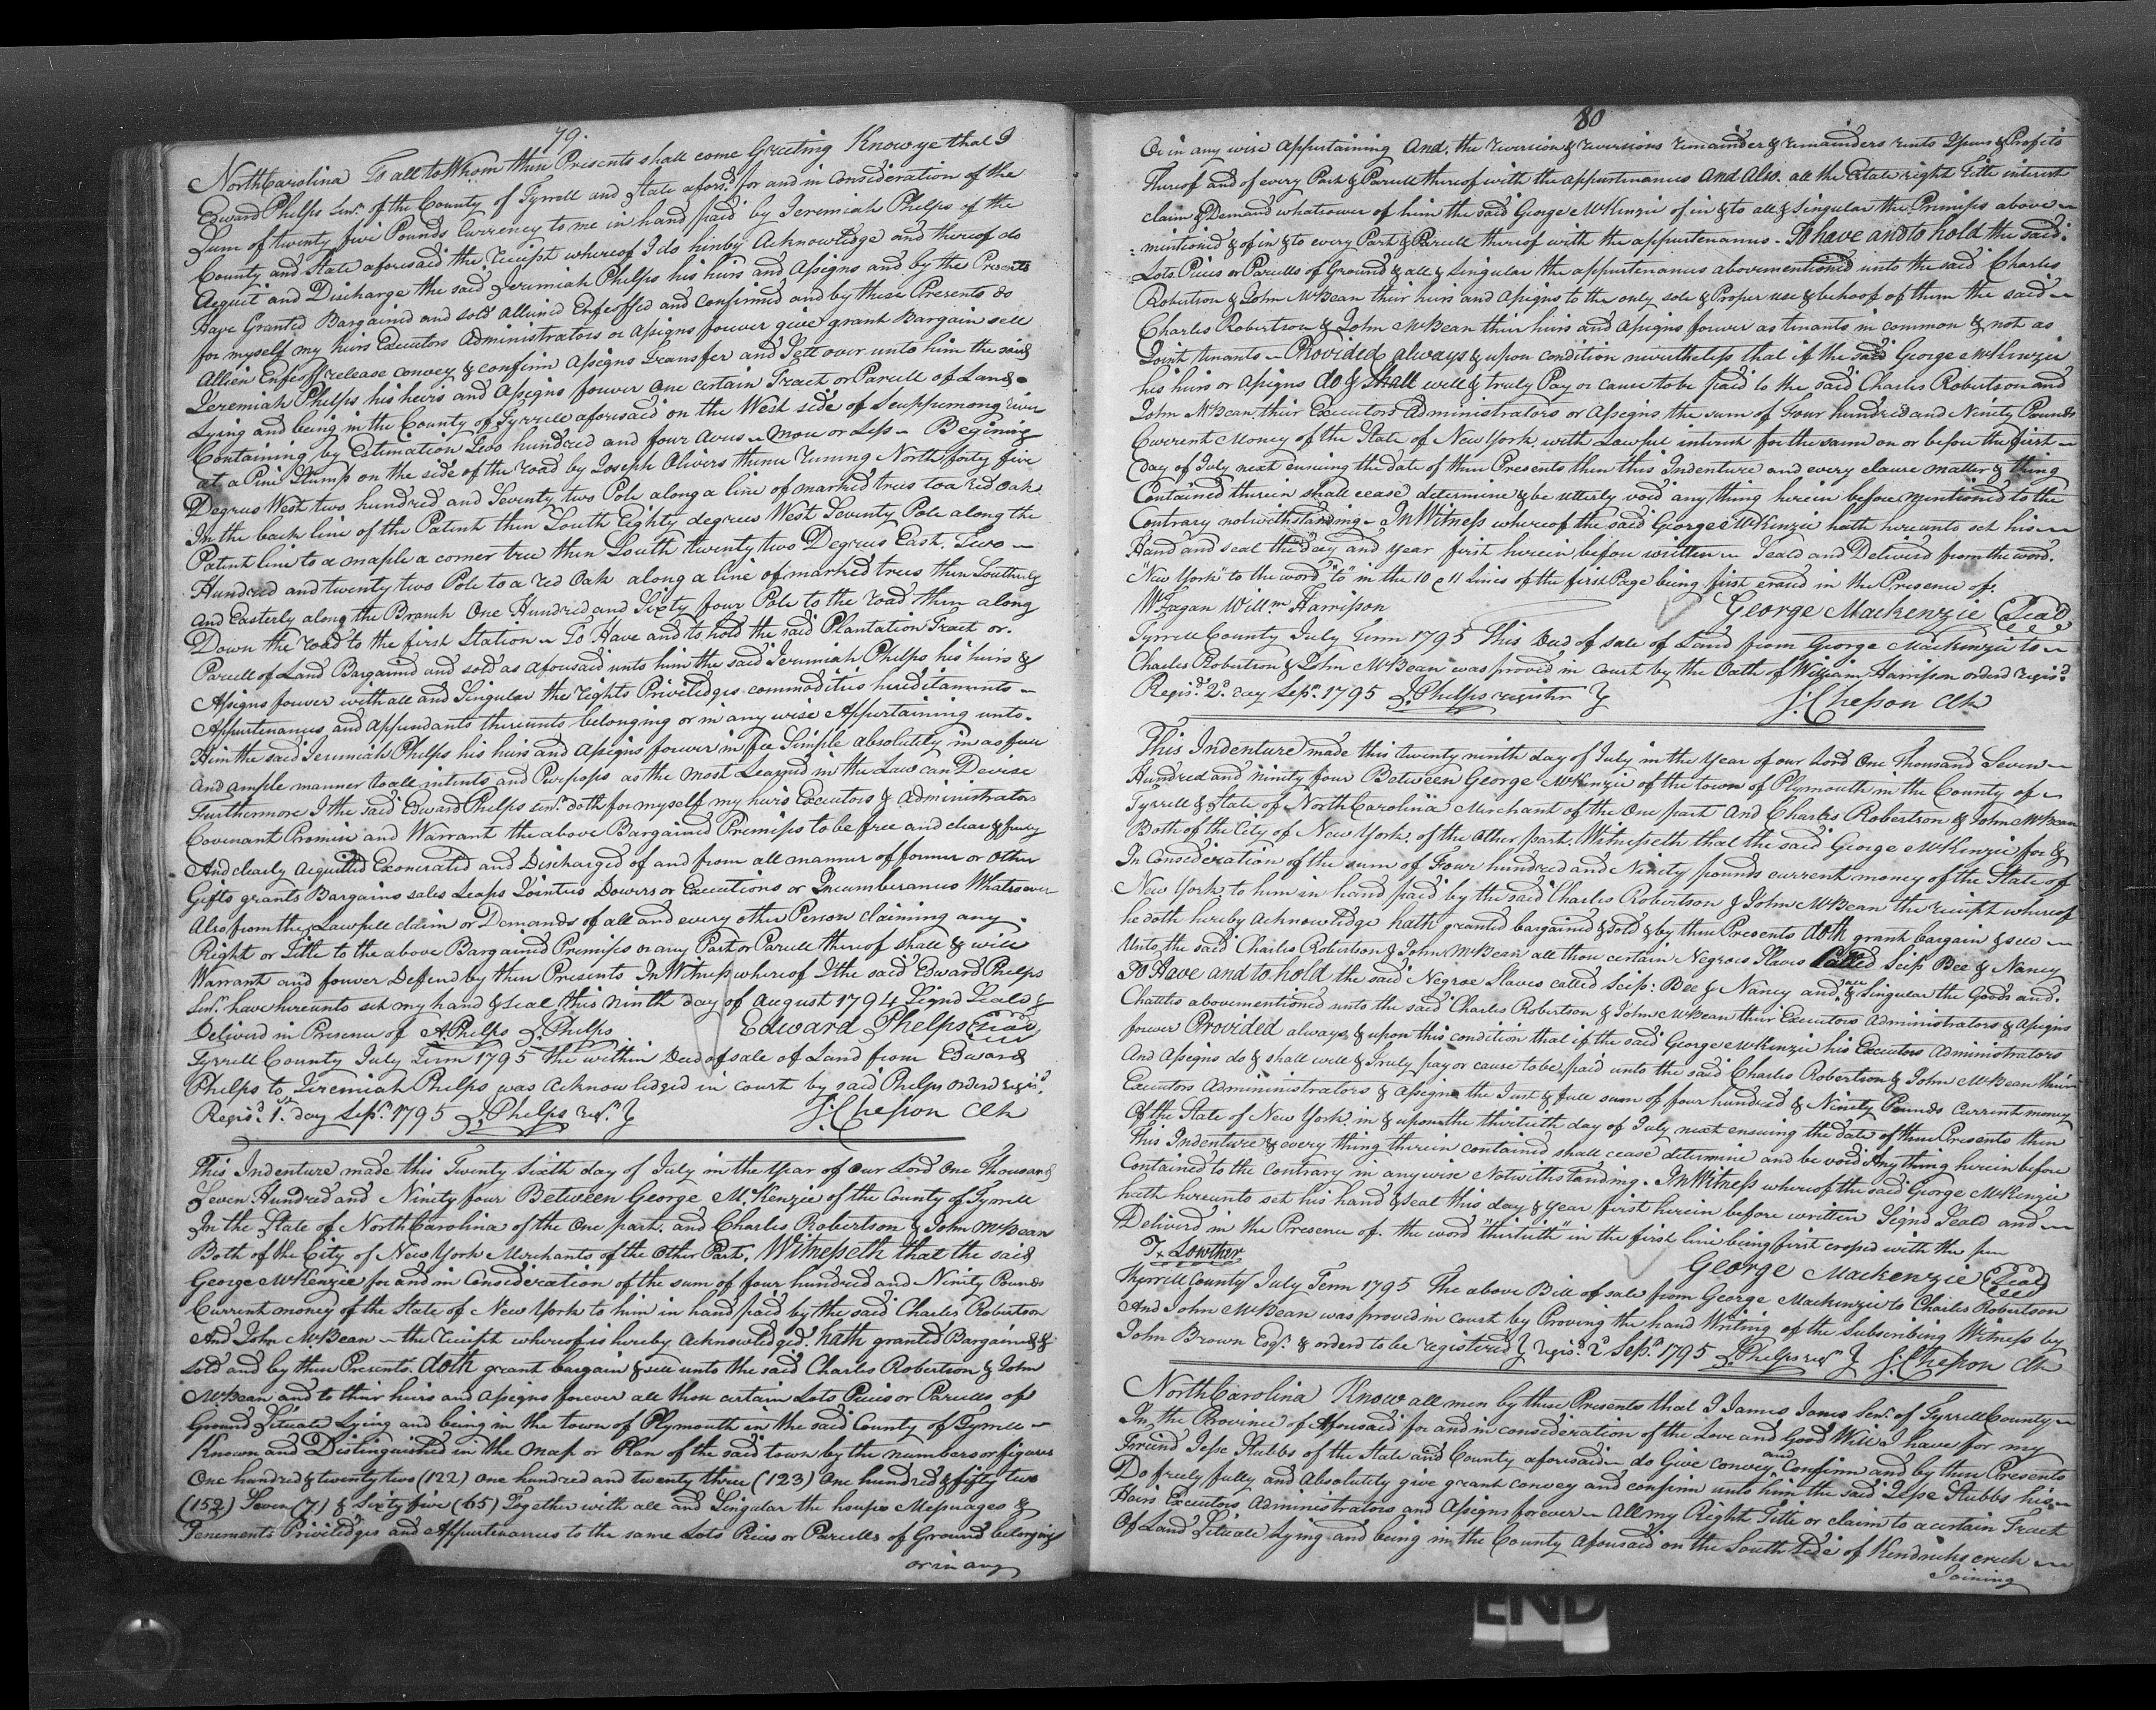 79.
NorthCarolina To all to Whom these Presents shall come Greeting Know ye that I
Edward Phelps Senr. of the County of Tyrrell and State aforsd. for and in Consideration of the
Sum of twenty five Pounds Currency to me in hand paid by Jeremiah Phelps of the
County and State aforesaid the receipt whereof I do hereby Acknowledge and thereof do
Acquit and Discharge the said Jeremiah Phelps his heirs and Assigns and by the Presents
Have Granted Bargained and sold Aliened Enfeoffed and Confirmed and by these Presents do
for myself my heirs Executors Administrators or Assigns forever give grant Bargain sell
Allien Enfeoff release convey & confirm Assigns Transfer and Sett over unto him the said
Jeremiah Phelps his heirs and Assigns forever One certain Tract or Parcell of Land
Lying and being in the County of Tyrrell aforesaid on the West side of Scuppernong river
Containing by Estimation Two hundred and four Acres more or Less Begining
at a Pine Stump on the side of the road by Joseph Olivers thence runing North forty five
Degrees West two hundred and Seventy two Pole along a line of marked trees to a red Oak
In the back line of the Patent then South Eighty degrees West Seventy Pole along the
Patent line to a maple a corner tree then South twenty two Degrees East. Two
Hundred and twenty two Pole to a red Oak along a line of marked trees then Southerly
And Easterly along the Branch One Hundred and Sixty four Pole to the road then along
Down the road to the first Station To Have and to hold the said Plantation Tract or
Parcell of Land Bargained and sold as aforesaid unto him the said Jeremiah Phelps his heirs &
Assigns forever with all and Singular the rights Priviledges commodities hereditaments
Appurtenances and Appendants thereunto belonging or in any wise Appertaining unto
Him the said Jeremiah Phelps his heirs and Assigns forever in fee Simple absolutely in as full
And ample manner to all intents and Purposes as the most Learned in the Law can Devise
Furthermore I the said Edward Phelps Senr. doth for myself my heirs Executors & Administrators
Covenant Promise and Warrant the above Bargained Premises to be free and clear & freely
And clearly Acquitted Exonerated and Discharged of and from all manner of former or other
Gifts grants Bargains sales Leases Jointures Dowers or Executions or Incumberances Whatsoever
Also from the Lawfull claim or Demands of all and every other Person claiming any
Right or Title to the above Bargained Premises or any Part or Parcell thereof shall & will
Warrant and forever Defend by these Presents In Witness whereof I the said Edward Phelps
Senr. have hereunto set my hand & seal this ninth day of August 1794 Signd Seald &
Deliverd in Presence of A. Phelps J. Phelps Edward Phelps Seal
Tyrrell County July Term 1795 The within Deed of sale of Land from Edward
Phelps to Jeremiah Phelps was Acknowledged in court by said Phelps orderd regisd.
Regisd. 1st. day Sepr. 1795 J. Phelps regr. } J: Chesson Clk
This Indenture made this Twenty Sixth day of July in the Year of Our Lord One Thousand
Seven Hundred and Ninety four Between George McKenzie of the County of Tyrrell
In the State of NorthCarolina of the One part. and Charles Robertson & John McBean
Both of the City of New York Merchants of the Other Part, Witnesseth that the said
George McKenzie for and in Consideration of the sum of four hundred and Ninety Pounds
Current money of the State of New York to him in hand paid by the said Charles Robertson
And John McBean the receipt whereof is hereby Acknowledged. hath granted Bargained &
sold and by these Presents. doth grant bargain & sell unto the said Charles Robertson & John
McBean and to their heirs and Assigns forever all those certain Lots Pieces or Parcells of
Ground Situate Lying and being in the town of Plymouth in the said County of Tyrrell
Known and Distinguished in the map or Plan of the said town by the numbers or figures
One hundred & twenty two (122) One hundred and twenty three (123) One hundred & fifty two
(152) Seven (7) & Sixty five (65) Together with all and Singular the houses Messuages &
Tenements Priviledges and Appurtenances to the same Lots Pieces or Parcells of Ground belonging
or in any
80
Or in any wise Appertaining And. the reversion & reversions remainder & remainders rents Issues & Profits
thereof and of every Part & Parcell thereof with the appurtenances And Also. all the Estate right Title interest
claim & Demand whatsoever of him the said George McKinzie of in & to all & Singular the Premises above
mentioned & of in & to every Part & Parcell thereof with the appurtenances. To have and to hold the said
Lots Pieces or Parcells of Ground & all & Singular the appurtenances abovementioned unto the said Charles
Robertson & John McBean their heirs and Assigns to the only sole & Proper use & behoof of them the said
Charles Robertson & John McBean their heirs and Assigns forever as tenants in common & not as
Joint tenants Provided always & upon condition nevertheless that if the said George McKinzie
his heirs or Assigns do & shall well & truly Pay or cause to be paid to the said Charles Robertson and
John McBean, their Executors Administrators or Assigns the sum of Four hundred and Ninety Pounds
Current Money of the State of New York. with Lawful interest for the same on or before the first
day of July next ensuing the date of these Presents then this Indenture and every clause matter & thing
Contained therein shall cease determine & be utterly void any thing herein before mentioned to the
Contrary notwithstanding. In Witness whereof the said George McKinzie hath hereunto set his
Hand and seal the day and year first herein before written Seald and Deliverd from the word.
"New York" to the word "to" in the 10 & 11 Lines of the first Page being first erasd in the Presence of.
W Fagan Willm. Harrison George Mackenzie Seal
Tyrrell County July Term 1795 This Deed of sale of Land from George Mackenzie to
Charles Robertson & John McBean was proved in Court by the Oath of William Harrison orderd regisd.
Regisd. 2d. day Sepr. 1795 J. Phelps register } J: Chesson Clk
This Indenture made this twenty ninth day of July in the Year of our Lord One Thousand Seven
Hundred and ninety four Between George McKenzie of the town of Plymouth in the County of
Tyrrell & State of NorthCarolina Merchant of the One part And Charles Robertson & John McBean
Both of the City of New York. of the Other part. Witnesseth that the said George McKinzie for &
In Consideration of the sum of Four hundred and Ninety pounds current money of the State of
New York to him in hand paid by the said Charles Robertson & John McBean the receipt whereof
he doth hereby Acknowledge hath granted bargained & sold & by these Presents doth grant bargain & sell
Unto the said Charles Robertson & John McBean all those certain Negroes Slaves Called Scip Bee & Nancy
To Have and to hold the said Negroe Slaves called Scip: Bee & Nancy and all & Singular the Goods and.
Chattles abovementioned unto the said Charles Robertson & John McBean their Executors Administrators & Assigns
forever Provided always & upon this condition that if the said George McKinzie his Executors Administrators
And Assigns do & shall well & Truly pay or cause to be paid unto the said Charles Robertson & John McBean their
Executors Admininistrators & Assigns the Just & full sum of four hundred & Ninety Pounds Current money
Of the State of New York. in & upon the thirtieth day of July next ensuing the date of these Presents then
This Indenture & every thing therein contained shall cease determine and be void Any thing herein before
Contained to the Contrary in anywise Notwithstanding. In Witness whereof the said George McKinzie
hath hereunto set his hand & seal this day & year first herein before written Signd Seald and
Deliverd in the Presence of. the word "thirtieth" in the first line being first crossed with the pen
Tx Lowther George Mackenzie Seal
Tyrrell County July Term 1795 The above Bill of sale from George Mackenzie to Charles Robertson
And John McBean was proved in court by Proving the hand Writing of the Subscribing Witness by
John Brown Esqr. & orderd to be registered } regisd. 2d Sepr. 1795 J. Phelps regr } J: Chesson Clk
NorthCarolina Know all men by these Presents that I James Jones Senr. of Tyrrell County
In the Province of Aforesaid for and in consideration of the Love and Good Will I have for my
Friend Jesse Stubbs of the State and County aforesaid do Give convey and Confirm and by these Presents
Do freely fully and Absolutely give grant convey and confirm unto him the said Jesse Stubbs his
Heirs Executors Administrators and Assigns forever All my Right Title or claim to a certain Tract
Of Land Situate Lying and being in the County aforesaid on the South Side of Kendricks creek
Joining
END